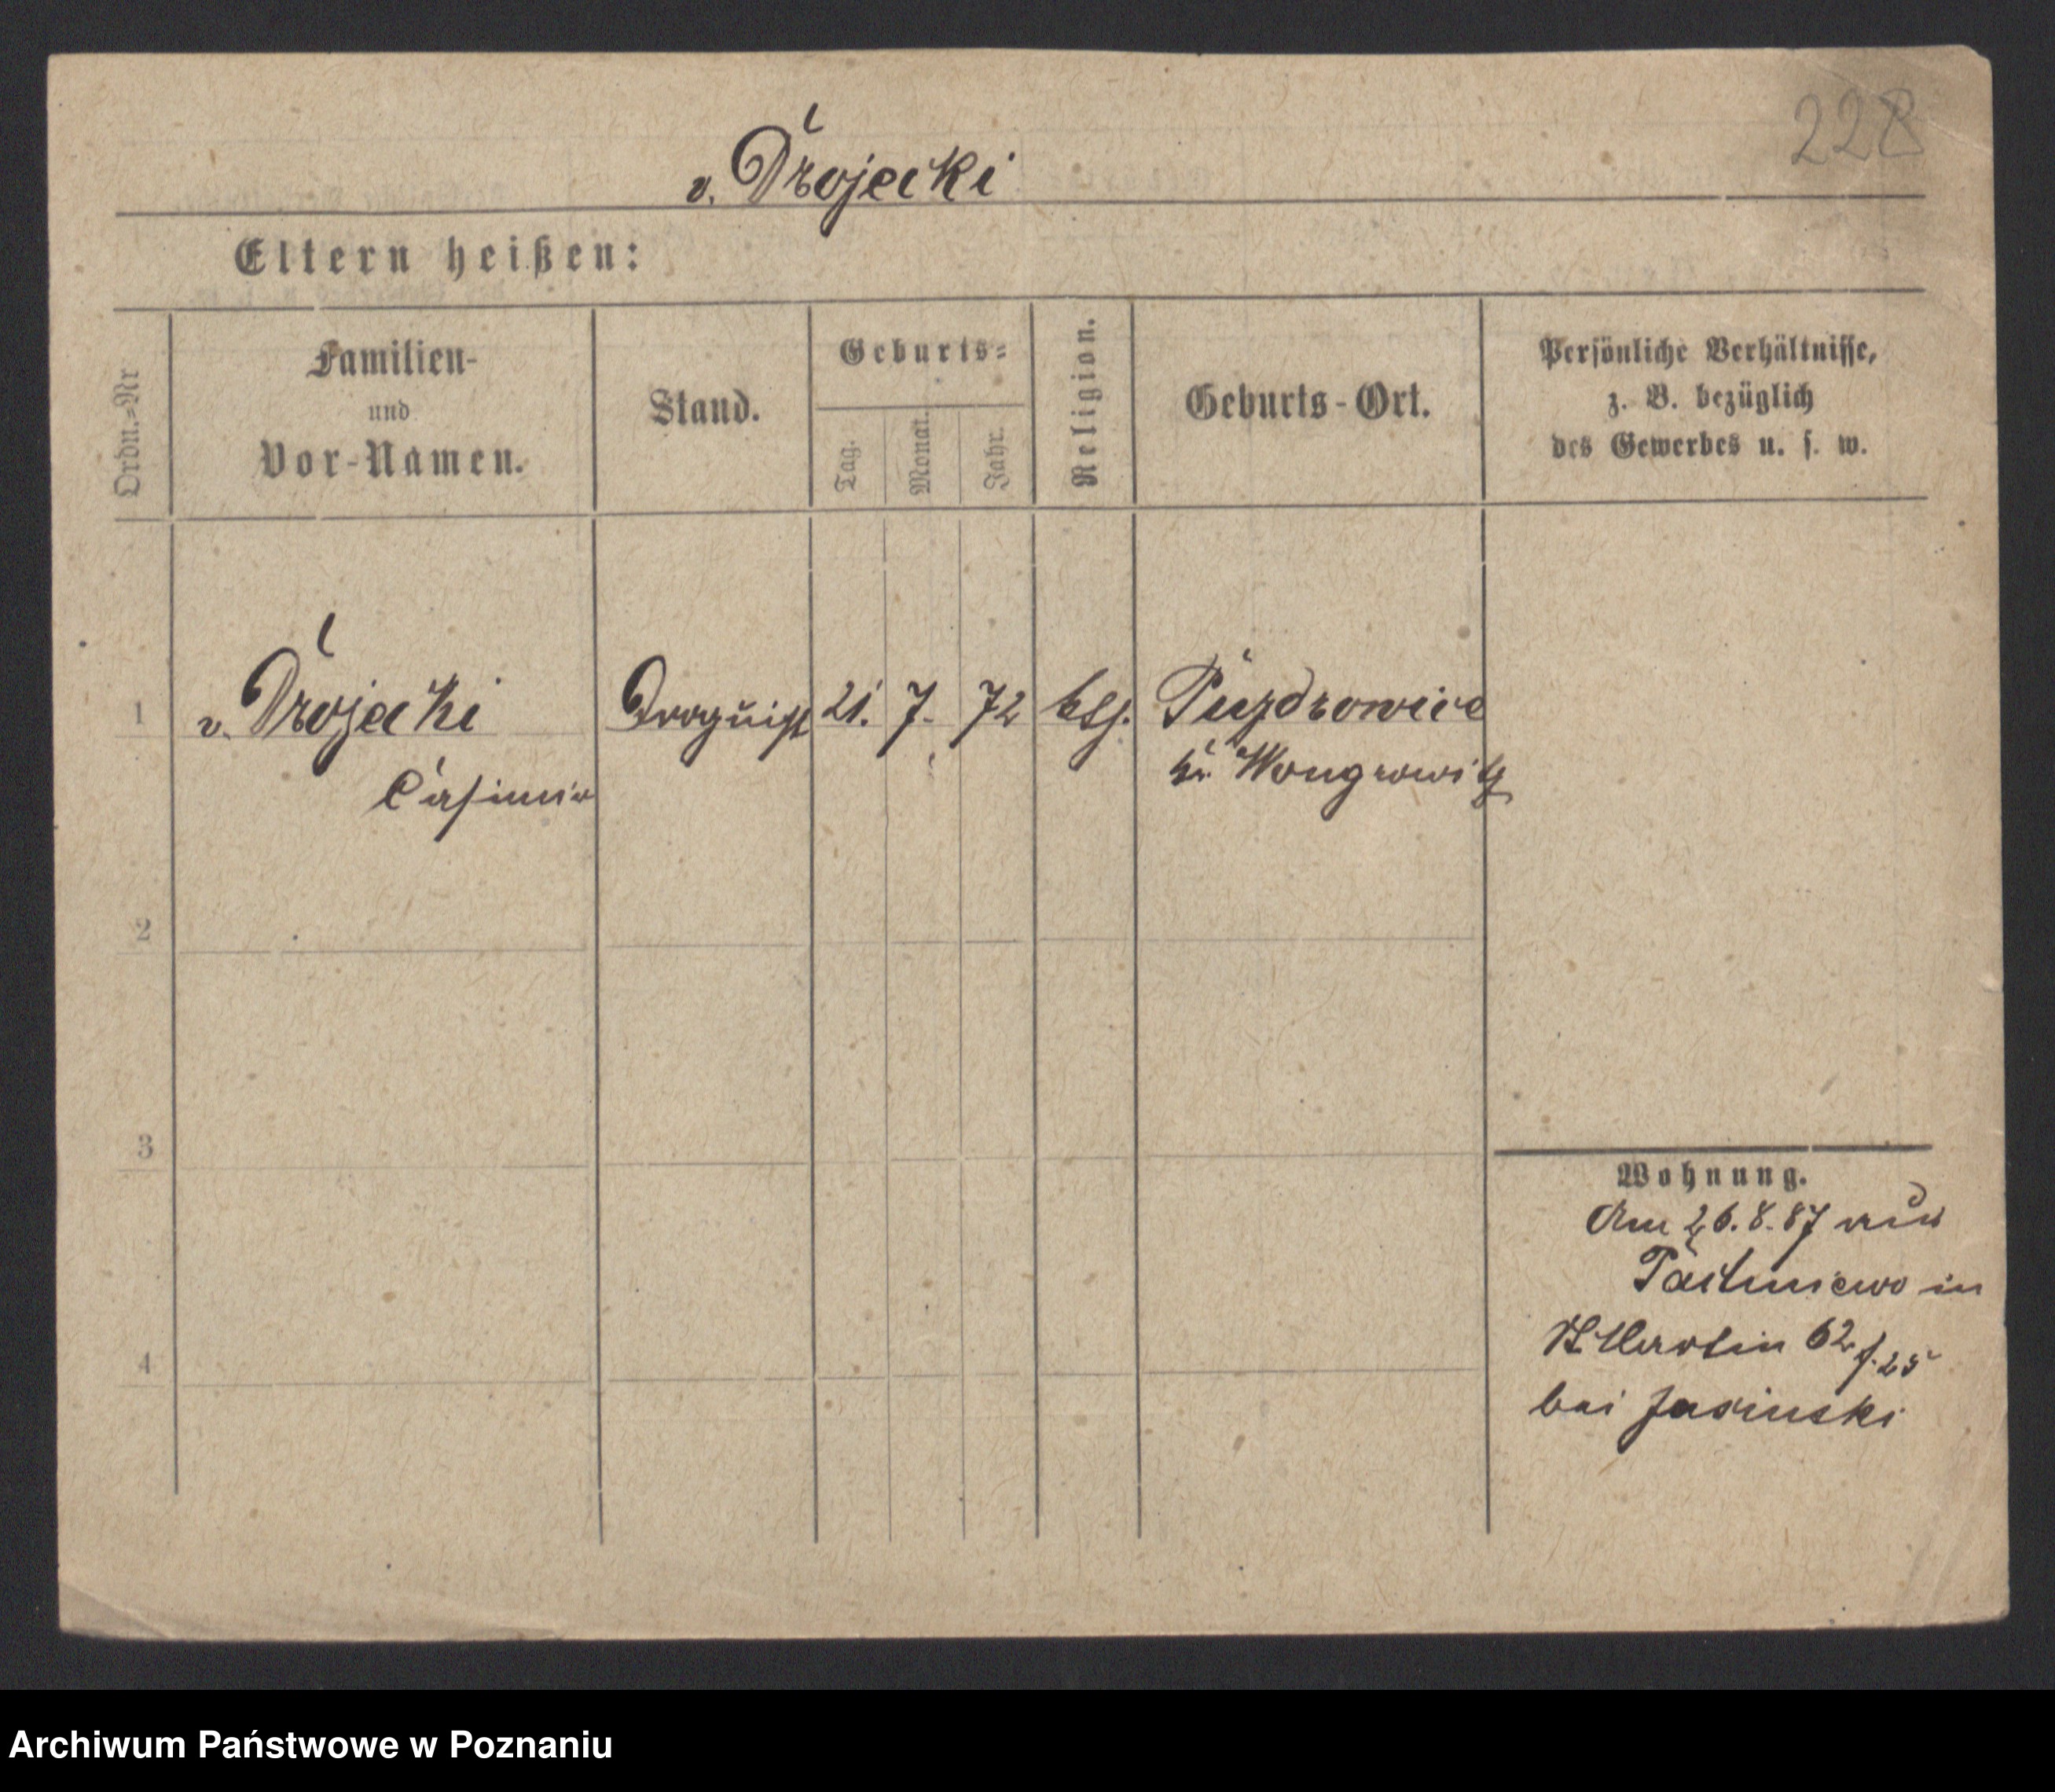 228
v. Drojecki
Eltern heißen:
Ordn.=Nr
Familien-
und
Vor-Namen.
Stand.
Geburts=
Tag.
Monat.
Jahr.
Religion.
Geburts-Ort.
Persönliche Verhältnisse,
z. B. bezüglich
des Gewerbes u. s. w.
1
v. Drojecki
Casimir
Droguist
21.
7.
72
ktḥ.
Puzdrowiec
Kr. Wongrowitz
2
3
4
Wohnung.
Am 26.8.87 aus
in
St. Martin 62 f. 25
bei Jasinski
Archiwum Państwowe w Poznaniu